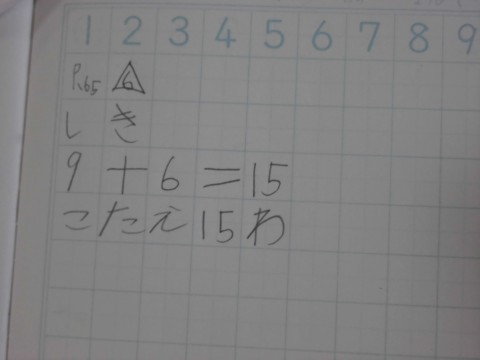 1 2 3 4 5 6 7 8 9
P.65 6
しき
9+6=15
こたえ15わ